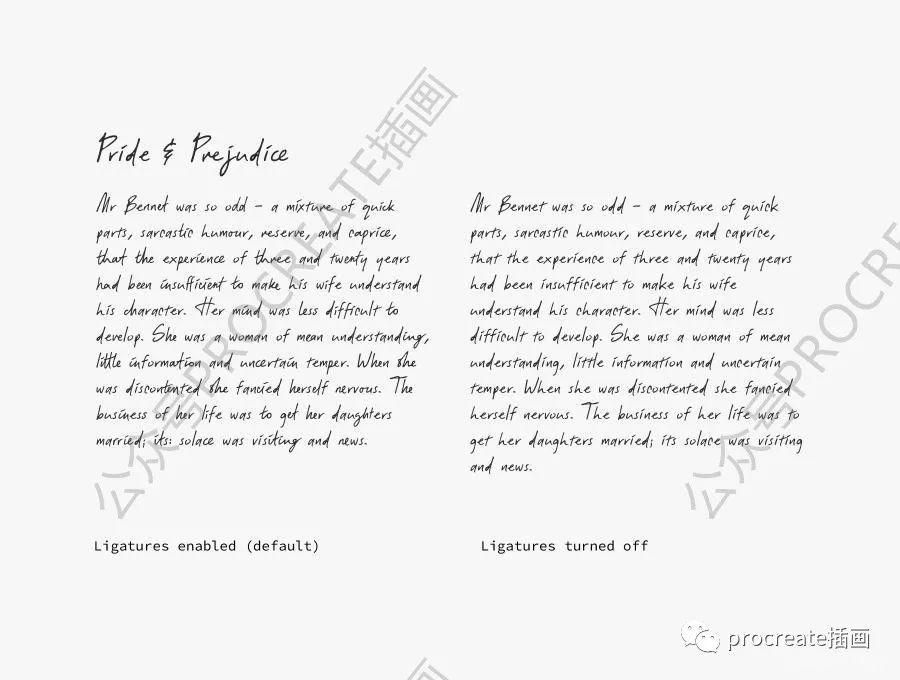 Pride & Prejudice
Mr Bennet was so odd – a mixture of quick
parts, sarcastic humour, reserve, and caprice,
that the experience of three and twenty years
had been insufficient to make his wife understand
his character. Her mind was less difficult to
develop. She was a woman of mean understanding,
little information and uncertain temper. When she
was discontented she fancied herself nervous. The
business of her life was to get her daughters
married; its: solace was visiting and news.
Ligatures enabled (default)
Mr Bennet was so odd – a mixture of quick
parts, sarcastic humour, reserve, and caprice,
that the experience of three and twenty years
had been insufficient to make his wife
understand his character. Her mind was less
difficult to develop. She was a woman of mean
understanding, little information and uncertain
temper. When she was discontented she fancied
herself nervous. The business of her life was to
get her daughters married; its solace was visiting
and news.
Ligatures turned off
公众号PROCREATE插画
公众号PROCRE
画
procreate插画